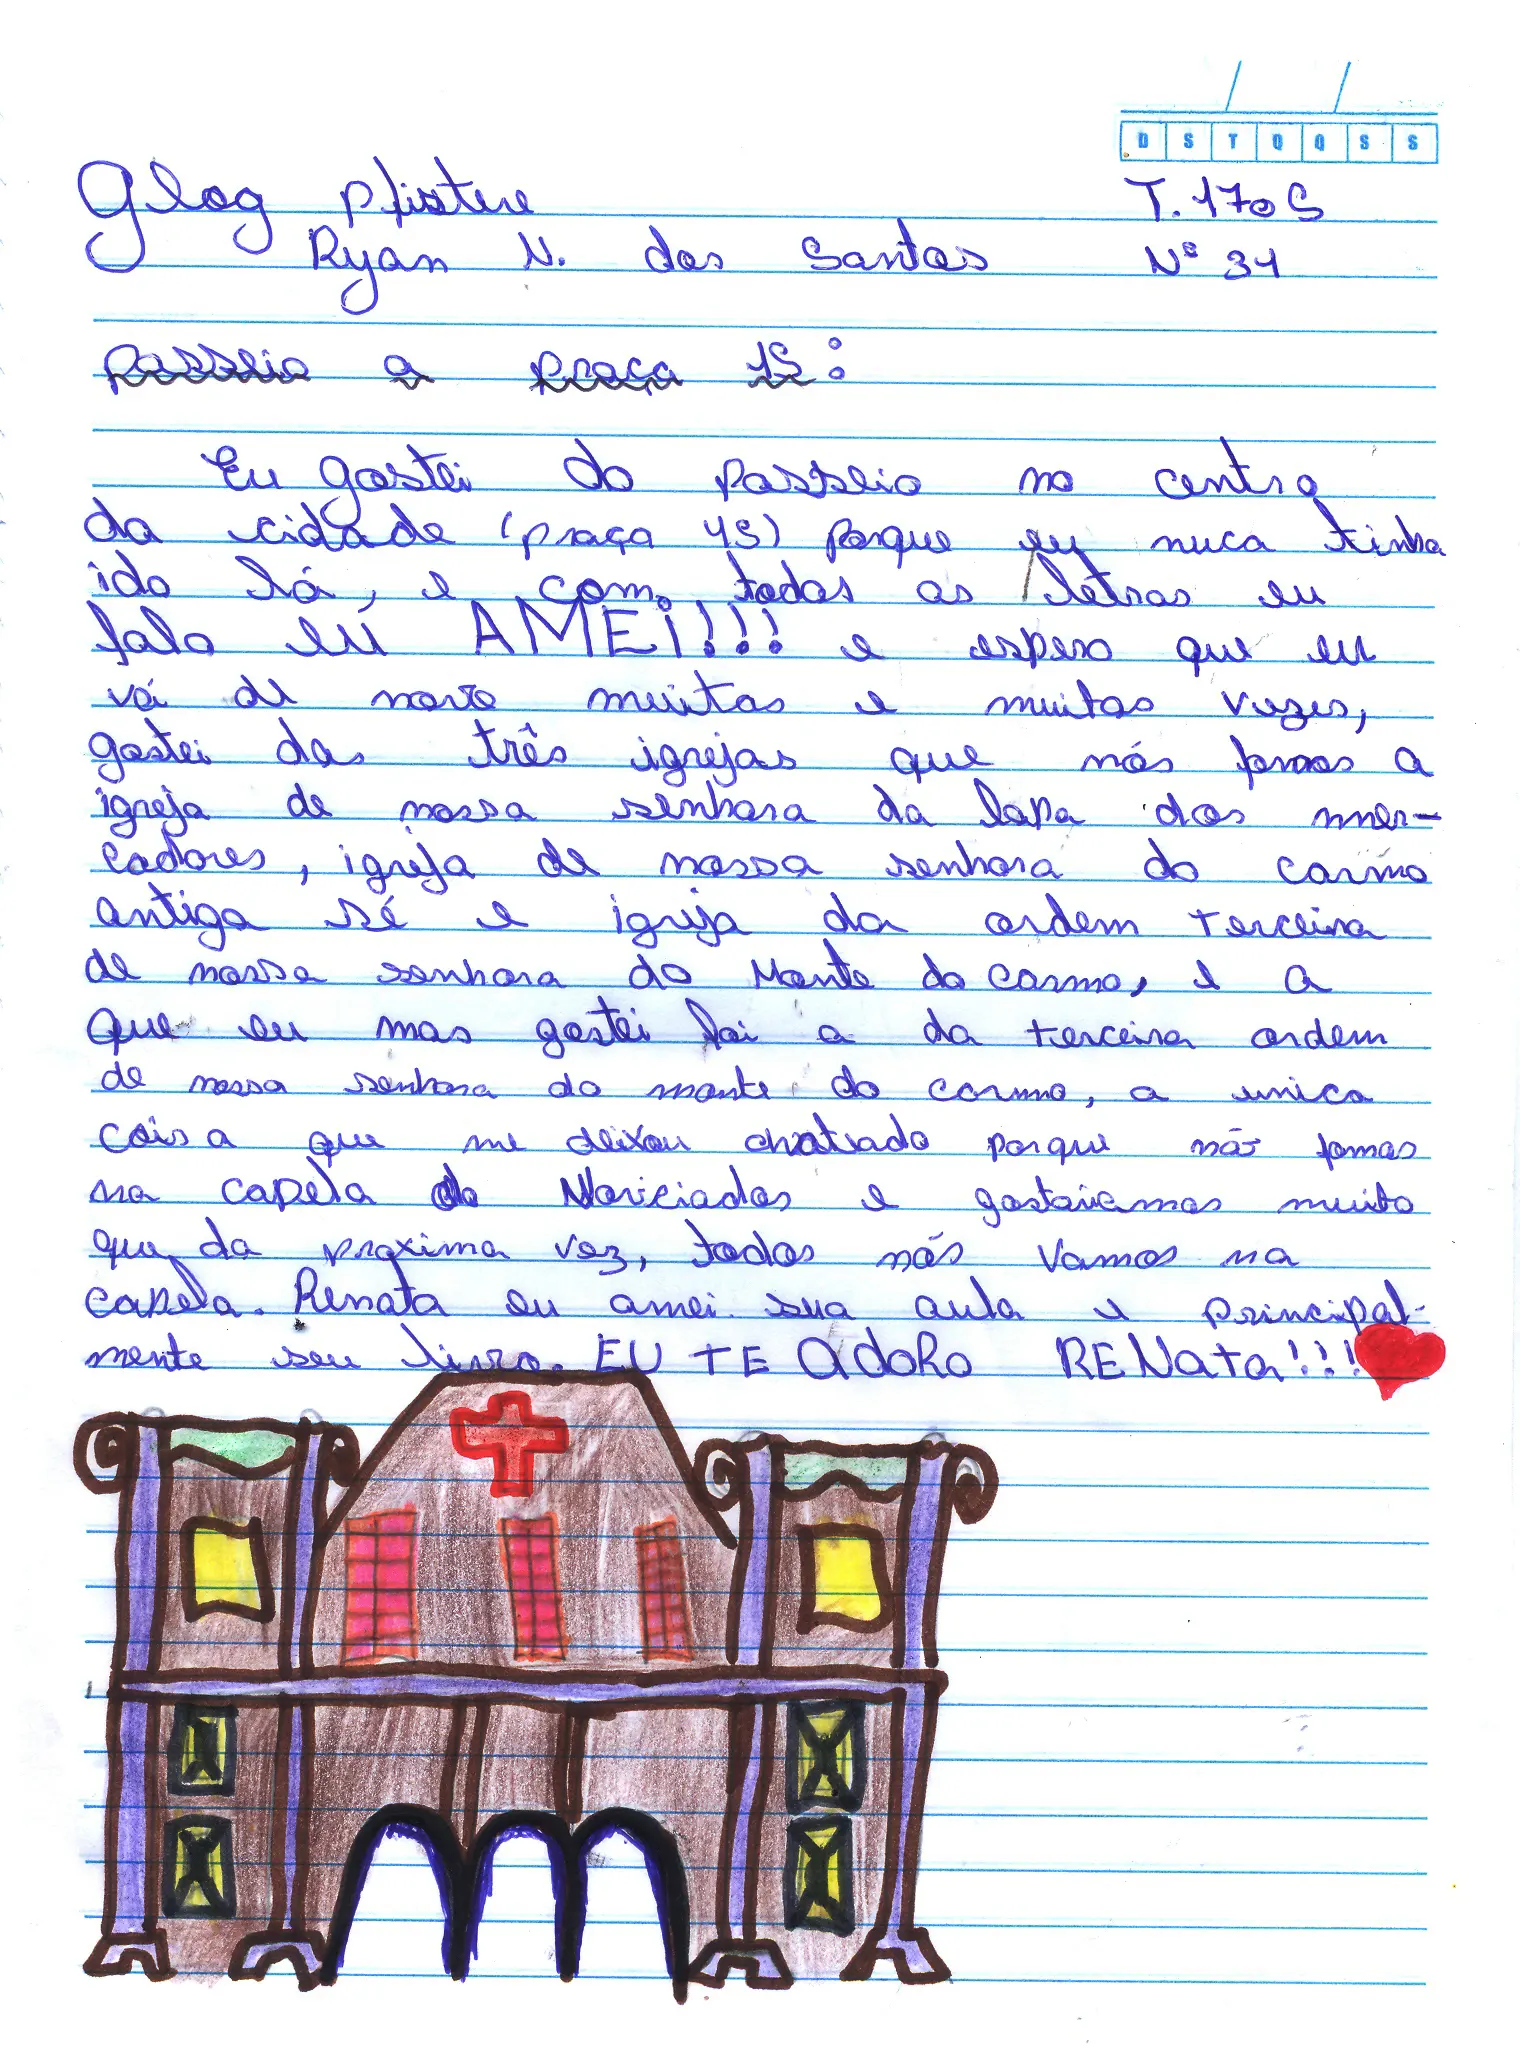 D S T Q Q S S
Glog Pfistere T. 1705
Ryan N. dos Santos Nº 34
Passeio a praça 15:
Eu gostei do passeio no centro
da cidade (praça 15) porque eu nuca tinha
ido lá, e com todas as letras eu
falo eu AMEi!!! e espero que eu
vá de novo muitas e muitas vezes,
gostei das três igrejas que nós fomos a
igreja de nossa senhora da lapa dos mer-
cadores, igreja de nossa senhora do carmo
antiga sé e igreja da ordem terceira
de nossa senhora do Monte do carmo, e a
que eu mas gostei foi a da terceira ordem
de nossa senhora do monte do carmo, a unica
coisa que me deixou chatiado porque não fomos
na capela do Noviciados e gostariamos muito
que da proxima vez, todos nós vamos na
capela. Renata eu amei sua aula e principal-
mente seu livro. EU TE AdoRo RENata!!!